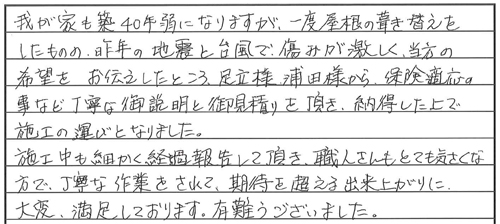 我が家も築40年弱になりますが、一度屋根の葺き替えを
したものの、昨年の地震と台風で傷みが激しく、当方の
希望を お伝えしたところ、足立様、浦田様から、保険適応の
事など丁寧な御説明と御見積りを頂き、納得した上で
施工の運びとなりました。
施工中も細かく経過報告して頂き、職人さんもとても気さくな
方で、丁寧な作業をされて、期待を超える出来上がりに、
大変、満足しております。有難うございました。